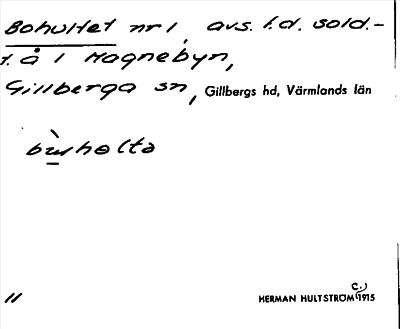 Bohultet nr 1, avs. f.d. sold.-
t. å 1 Hognebyn,
Gillberga sn, Gillbergs hd, Värmlands län
bu̠̠hs̀holta
11
HERMAN HULTSTRÖM (c.) 1915